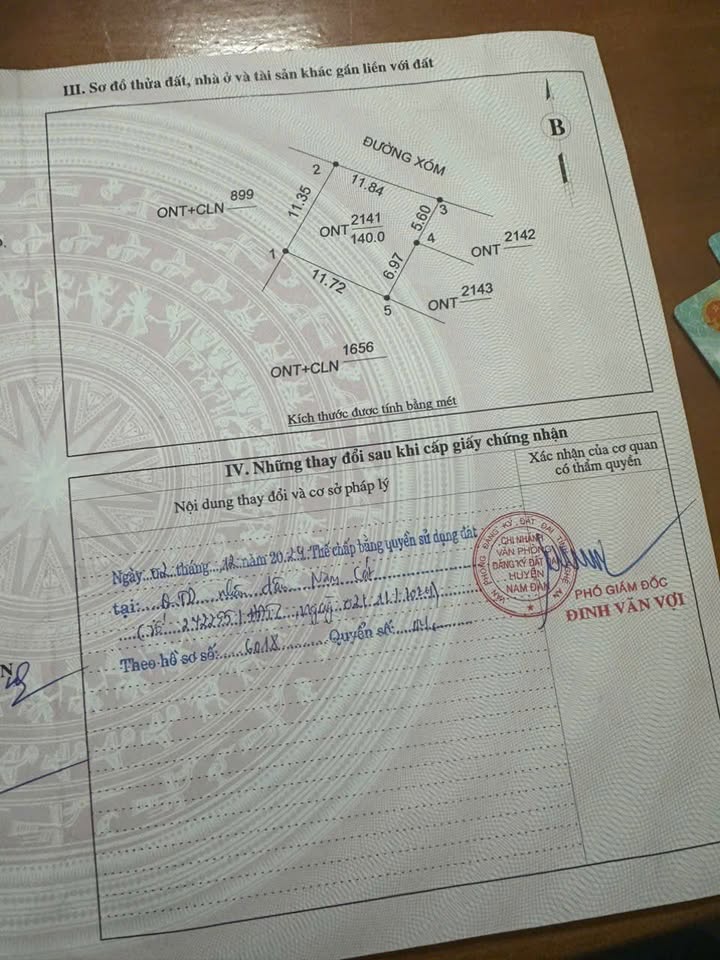 III. Sơ đồ thửa đất, nhà ở và tài sản khác gắn liền với đất
B
ĐƯỜNG XÓM
2
11.84
3
ONT+CLN 899
11.35
ONT 2141
140.0
5.60
4
ONT 2142
1
11.72
6.97
5
ONT 2143
ONT+CLN 1656
Kích thước được tính bằng mét
IV. Những thay đổi sau khi cấp giấy chứng nhận
Nội dung thay đổi và cơ sở pháp lý
Xác nhận của cơ quan
có thẩm quyền
Ngày 02 tháng 12 năm 2024 Thế chấp bằng quyền sử dụng đất
tại: QTD nhân dân Nam Cát
Theo hồ sơ số: 6018 Quyển số:
VĂN PHÒNG ĐĂNG KÝ ĐẤT ĐAI TỈNH NGHỆ AN
CHI NHÁNH
VĂN PHÒNG
ĐĂNG KÝ ĐẤT ĐAI
HUYỆN
NAM ĐÀN
PHÓ GIÁM ĐỐC
ĐINH VĂN VỢI
N